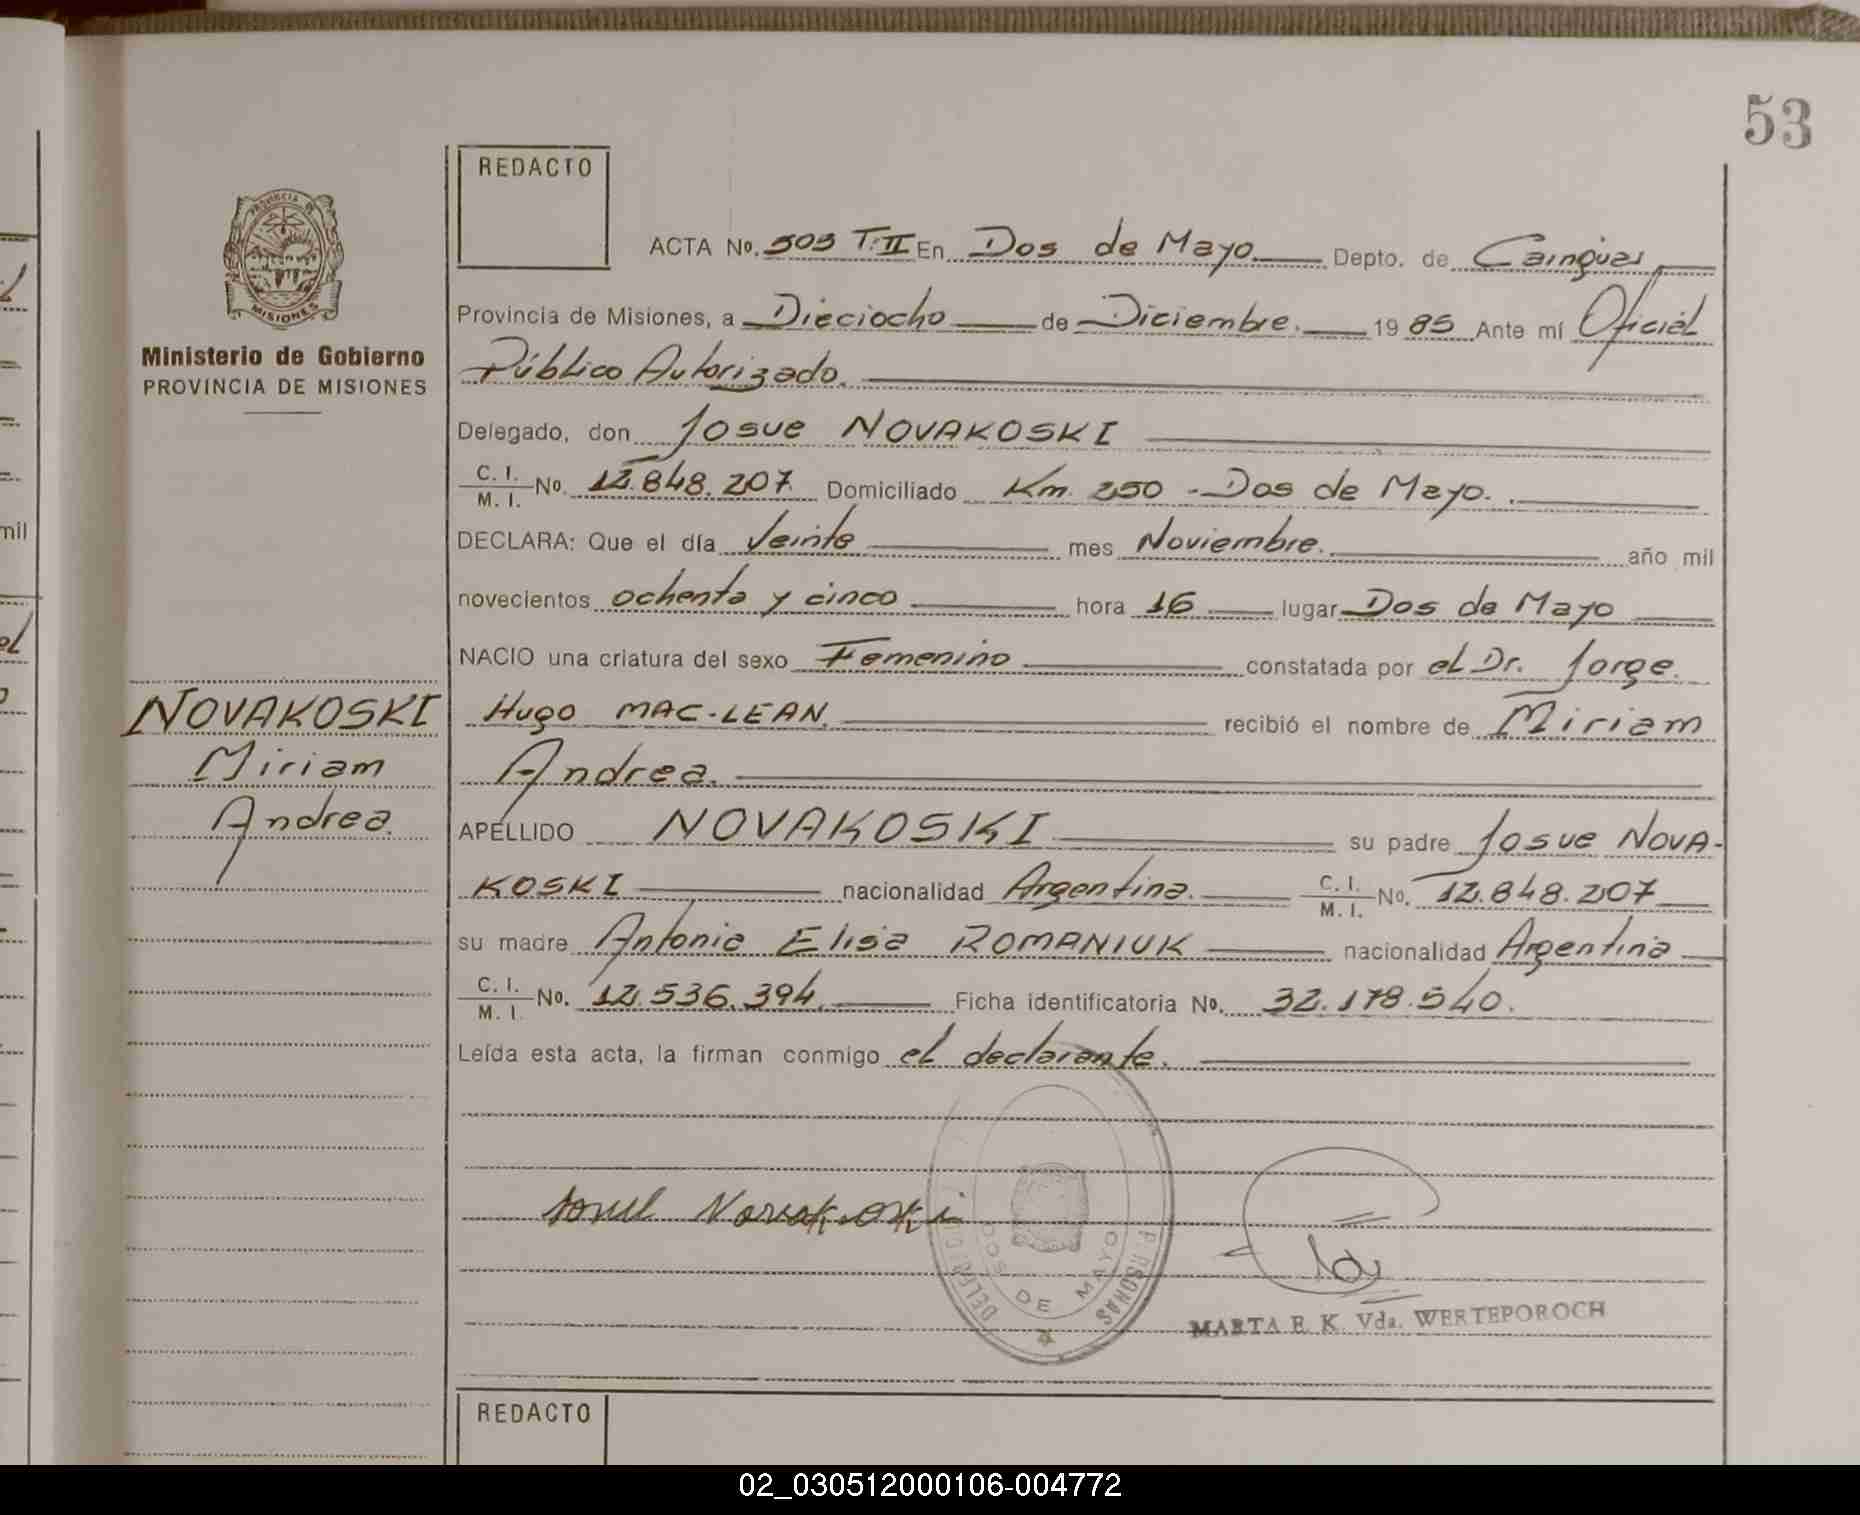 53
REDACTO
PROVINCIA DE
MISIONES
Ministerio de Gobierno
PROVINCIA DE MISIONES
ACTA No. 503 T.II En Dos de Mayo Depto. de Cainguas
Provincia de Misiones, a Dieciocho de Diciembre. 19 85 Ante mí Oficial
Público Autorizado.
Delegado, don Josue NOVAKOSKI
C. I. M. I. No. 12.848.207. Domiciliado Km. 250 - Dos de Mayo.
DECLARA: Que el día Veinte mes Noviembre. año mil
novecientos ochenta y cinco hora 16 lugar Dos de Mayo
NACIO una criatura del sexo Femenino constatada por el Dr. Jorge
Hugo MAC-LEAN. recibió el nombre de Miriam
Andrea.
APELLIDO NOVAKOSKI su padre Josue NOVA-
KOSKI nacionalidad Argentina. C. I. M. I. No. 12.848.207
su madre Antonia Elisa ROMANIUK nacionalidad Argentina
C. I. M. I. No. 12.536.394. Ficha identificatoria No. 32.178.540.
Leída esta acta, la firman conmigo el declarante.
NOVAKOSKI
Miriam
Andrea.
Novakoski
DOS DE MAYO
MARTA E. K. Vda. WERTEPOROCH
REDACTO
mil
02_030512000106-004772